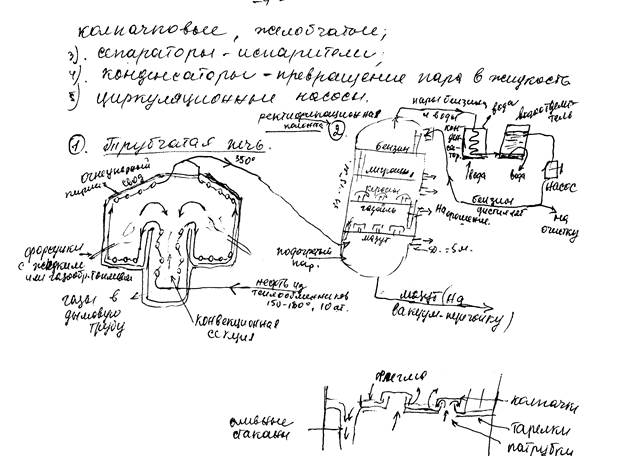 колпачковые, желобчатые;
3). сепараторы-испарители;
4). конденсаторы-превращение пара в жидкость
5) циркуляционные насосы.
① Трубчатая печь.
ректификационная
колонна ②
пары бензина
и воды
вода
водоотдели-
тель
кон
ден
сатор.
вода
вода
насос
бензин
дистиллат
на
очистку
огнеупорный
кирпич
свод
350°
бензин
лигроин
керосин
газойль
мазут
На орошение.
подогретый
пар.
форсунки
с жидким
или газообр. топливом
газы в
дымовую
трубу
конвекционная
секция
нефть из
теплообменников
150-180°, 10 ат.
мазут (на
вакуум-перегонку)
флегма
сливные
стаканы
колпачки
тарелки
патрубки